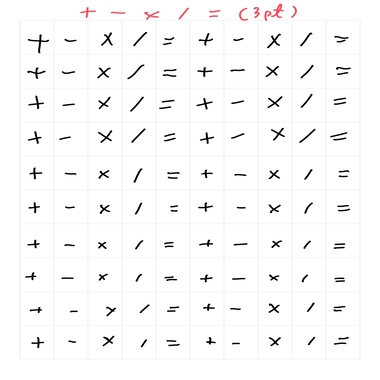 + - × / = (3pt)
+ - × / = + - × / =
+ - × / = + - × / =
+ - × / = + - × / =
+ - × / = + - × / =
+ - × / = + - × / =
+ - × / = + - × / =
+ - × / = + - × / =
+ - × / = + - × / =
+ - × / = + - × / =
+ - × / = + - × / =